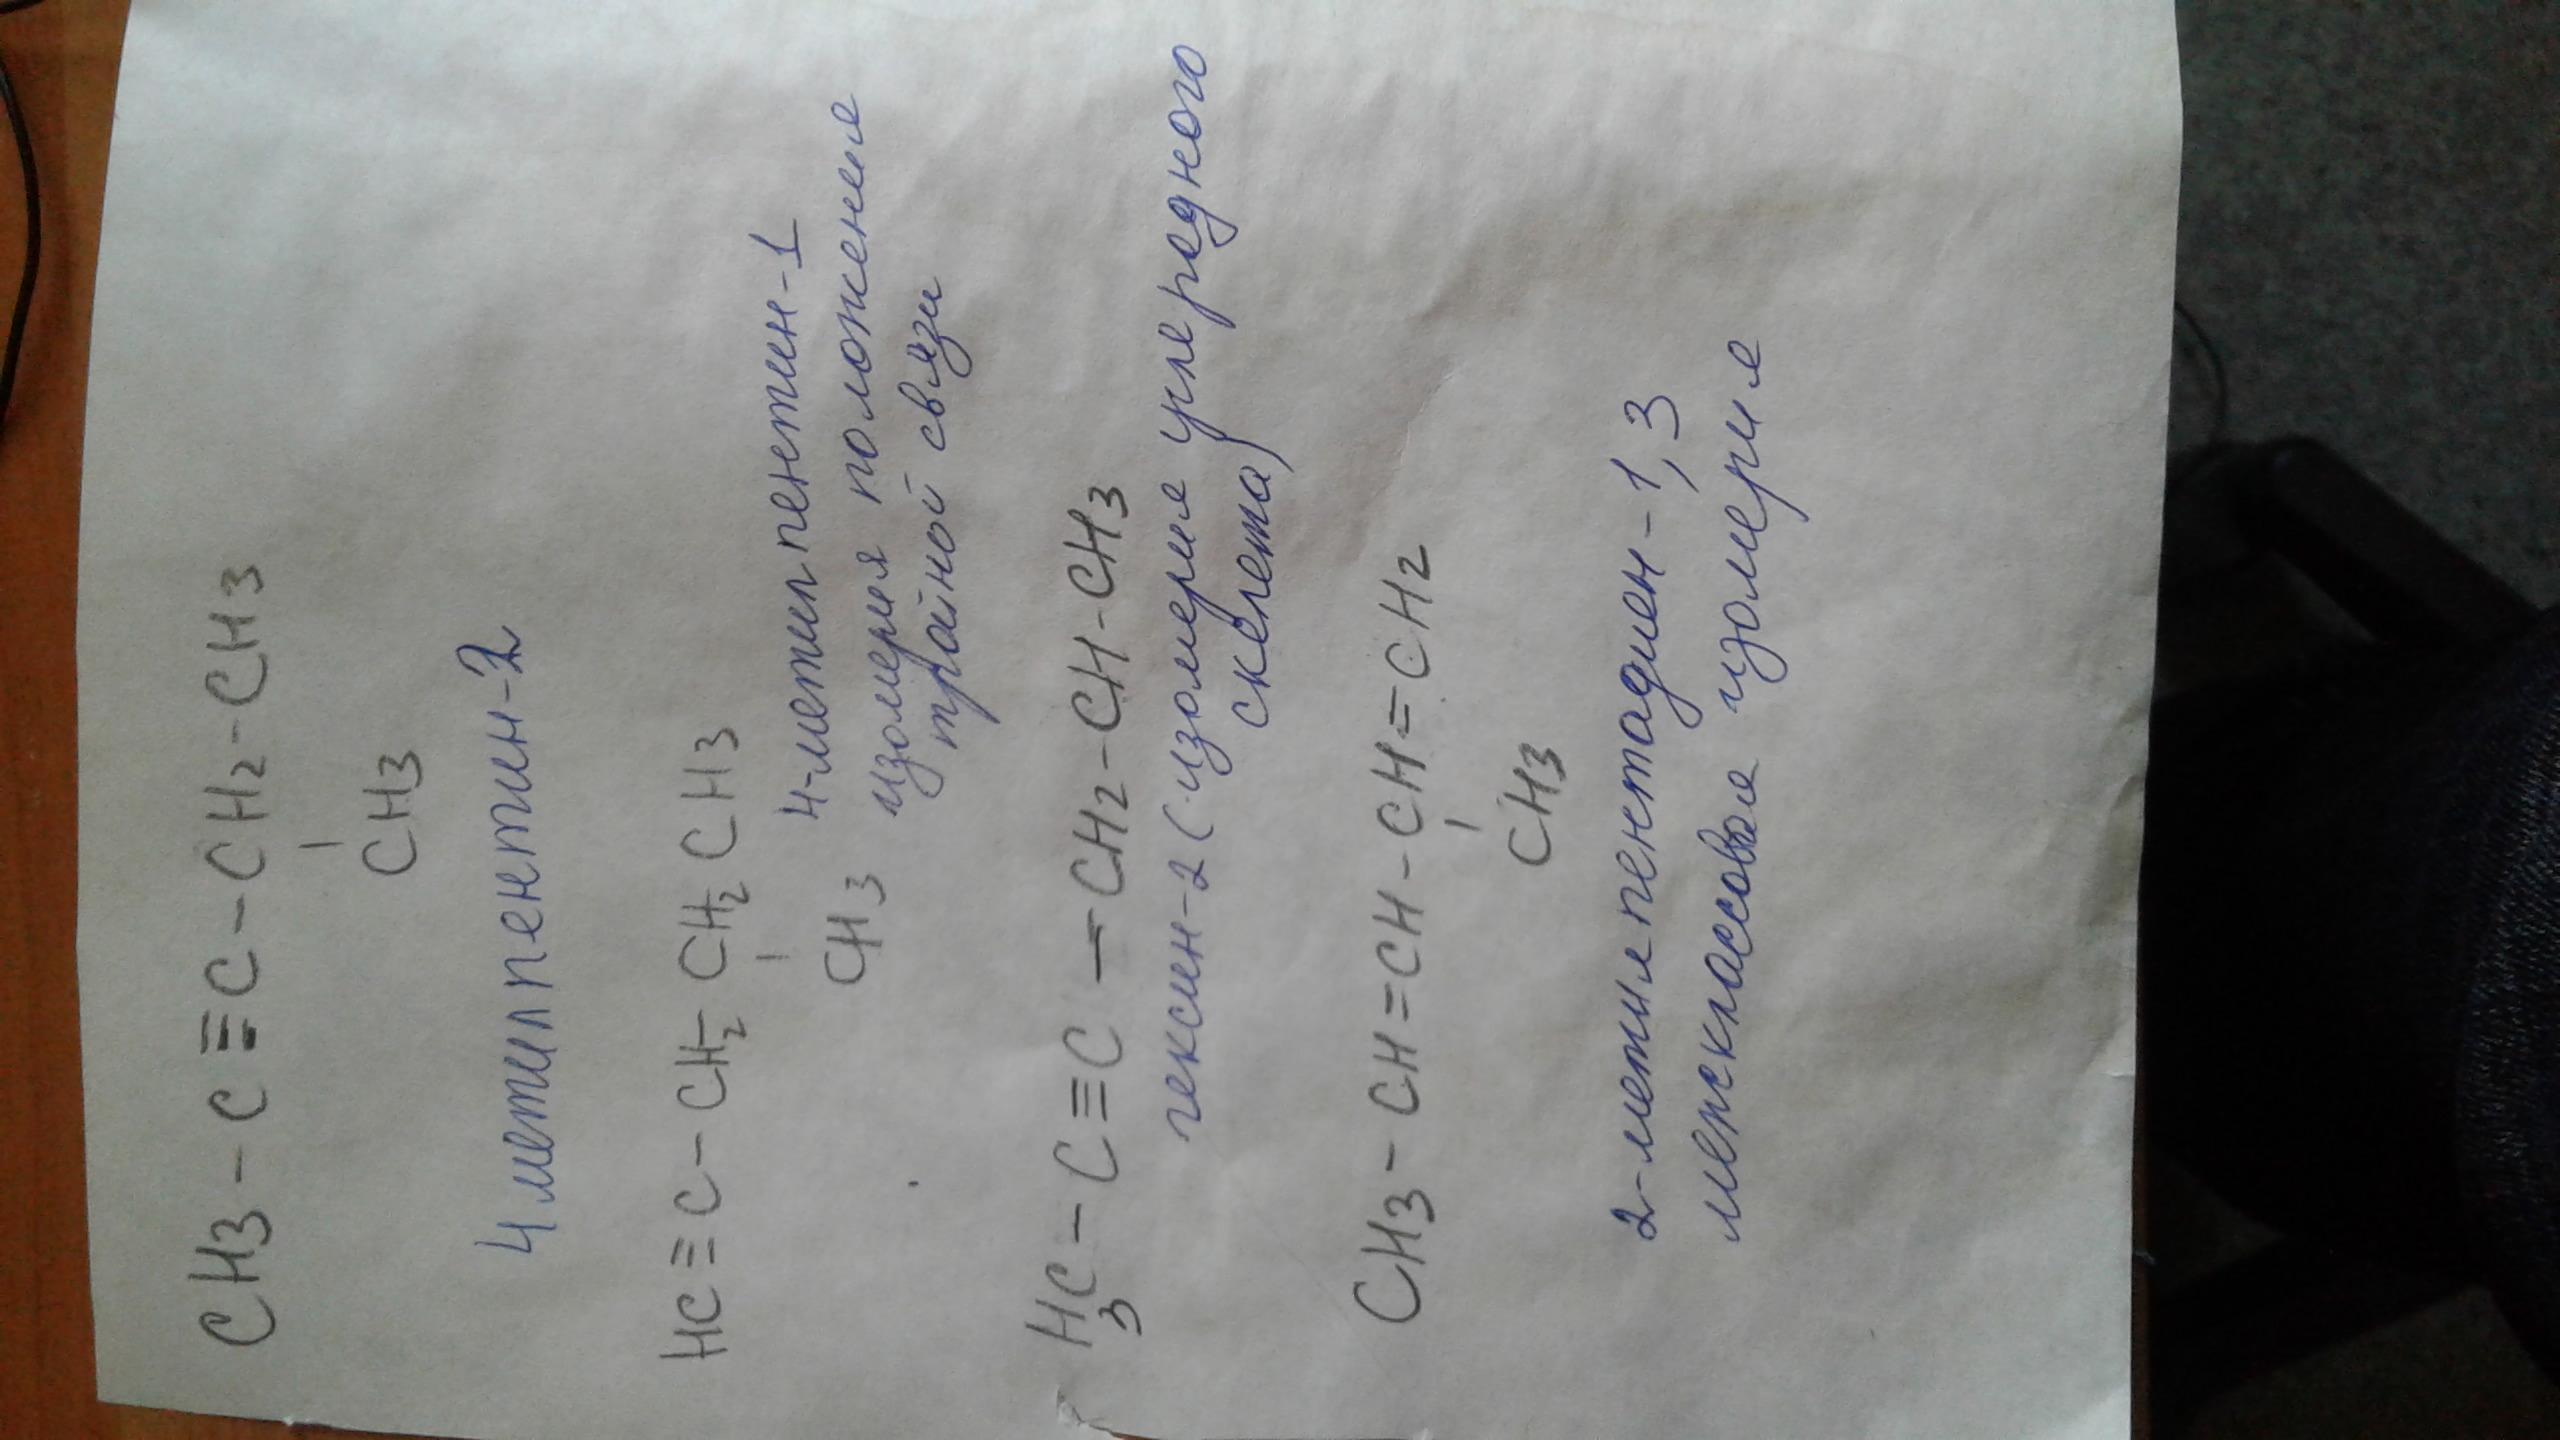 CH3 - C ≡ C - CH2 - CH3
CH3
4 метилпентин-2
HC ≡ C - CH2 - CH2 CH3
CH3
4-метилпентин-1
изомерия положения
тройной связи
H3C - C ≡ C - CH2 - CH - CH3
гексин-2 (изомерия углередного
скелета)
CH3 - CH = CH - CH = CH2
CH3
2-метилпентадиен-1,3
межклассовая изомерия